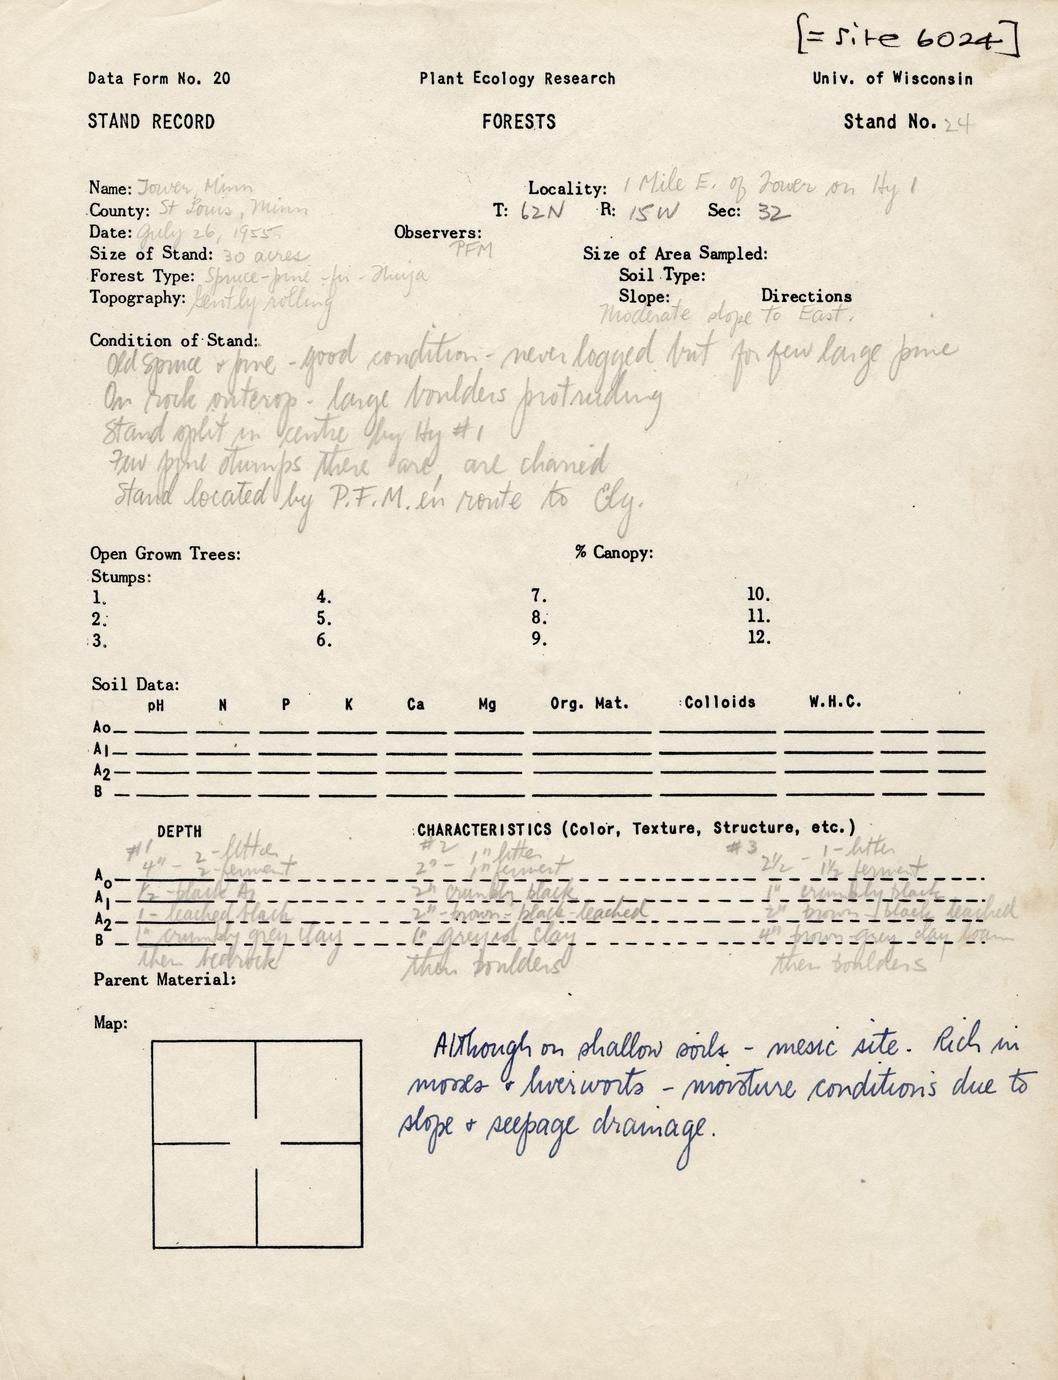 [= Site 6024]
Data Form No. 20 Plant Ecology Research Univ. of Wisconsin
STAND RECORD FORESTS Stand No. 24
Name: Tower, Minn Locality: 1 Mile E. of Tower on Hy 1
County: St Louis, Minn T: 62N R: 15W Sec: 32
Date: July 26, 1955 Observers: PFM
Size of Stand: 30 acres Size of Area Sampled:
Forest Type: Spruce-pine-fir-Thuja Soil Type:
Topography: Gently rolling Slope: Directions
Moderate slope to East.
Condition of Stand:
Old Spruce & pine - good condition - never logged but for few large pine
On rock outcrop - large boulders protruding
Stand split in centre by Hy #1
Few pine stumps there are, are charred
Stand located by P.F.M. en route to Ely.
Open Grown Trees: % Canopy:
Stumps:
1. 4. 7. 10.
2. 5. 8. 11.
3. 6. 9. 12.
Soil Data:
pH N P K Ca Mg Org. Mat. Colloids W.H.C.
Ao
A1
A2
B
DEPTH CHARACTERISTICS (Color, Texture, Structure, etc.)
#1 2 - litter #2 1" litter #3 1 - litter
Ao 4" - 2 - ferment 2" - 1" ferment 2 1/2 - 1 1/2 ferment
A1 1/2 - black A1 2" crumbly black 1" crumbly black
A2 1 - leached black 2" - brown - black - leached 2" brown - black leached
B 1" crumbly grey clay 1" greyish clay 4" brown-grey clay loam
then bedrock then boulders then boulders
Parent Material:
Map:
Although on shallow soils - mesic site. Rich in
mosses & liverworts - moisture conditions due to
slope & seepage drainage.